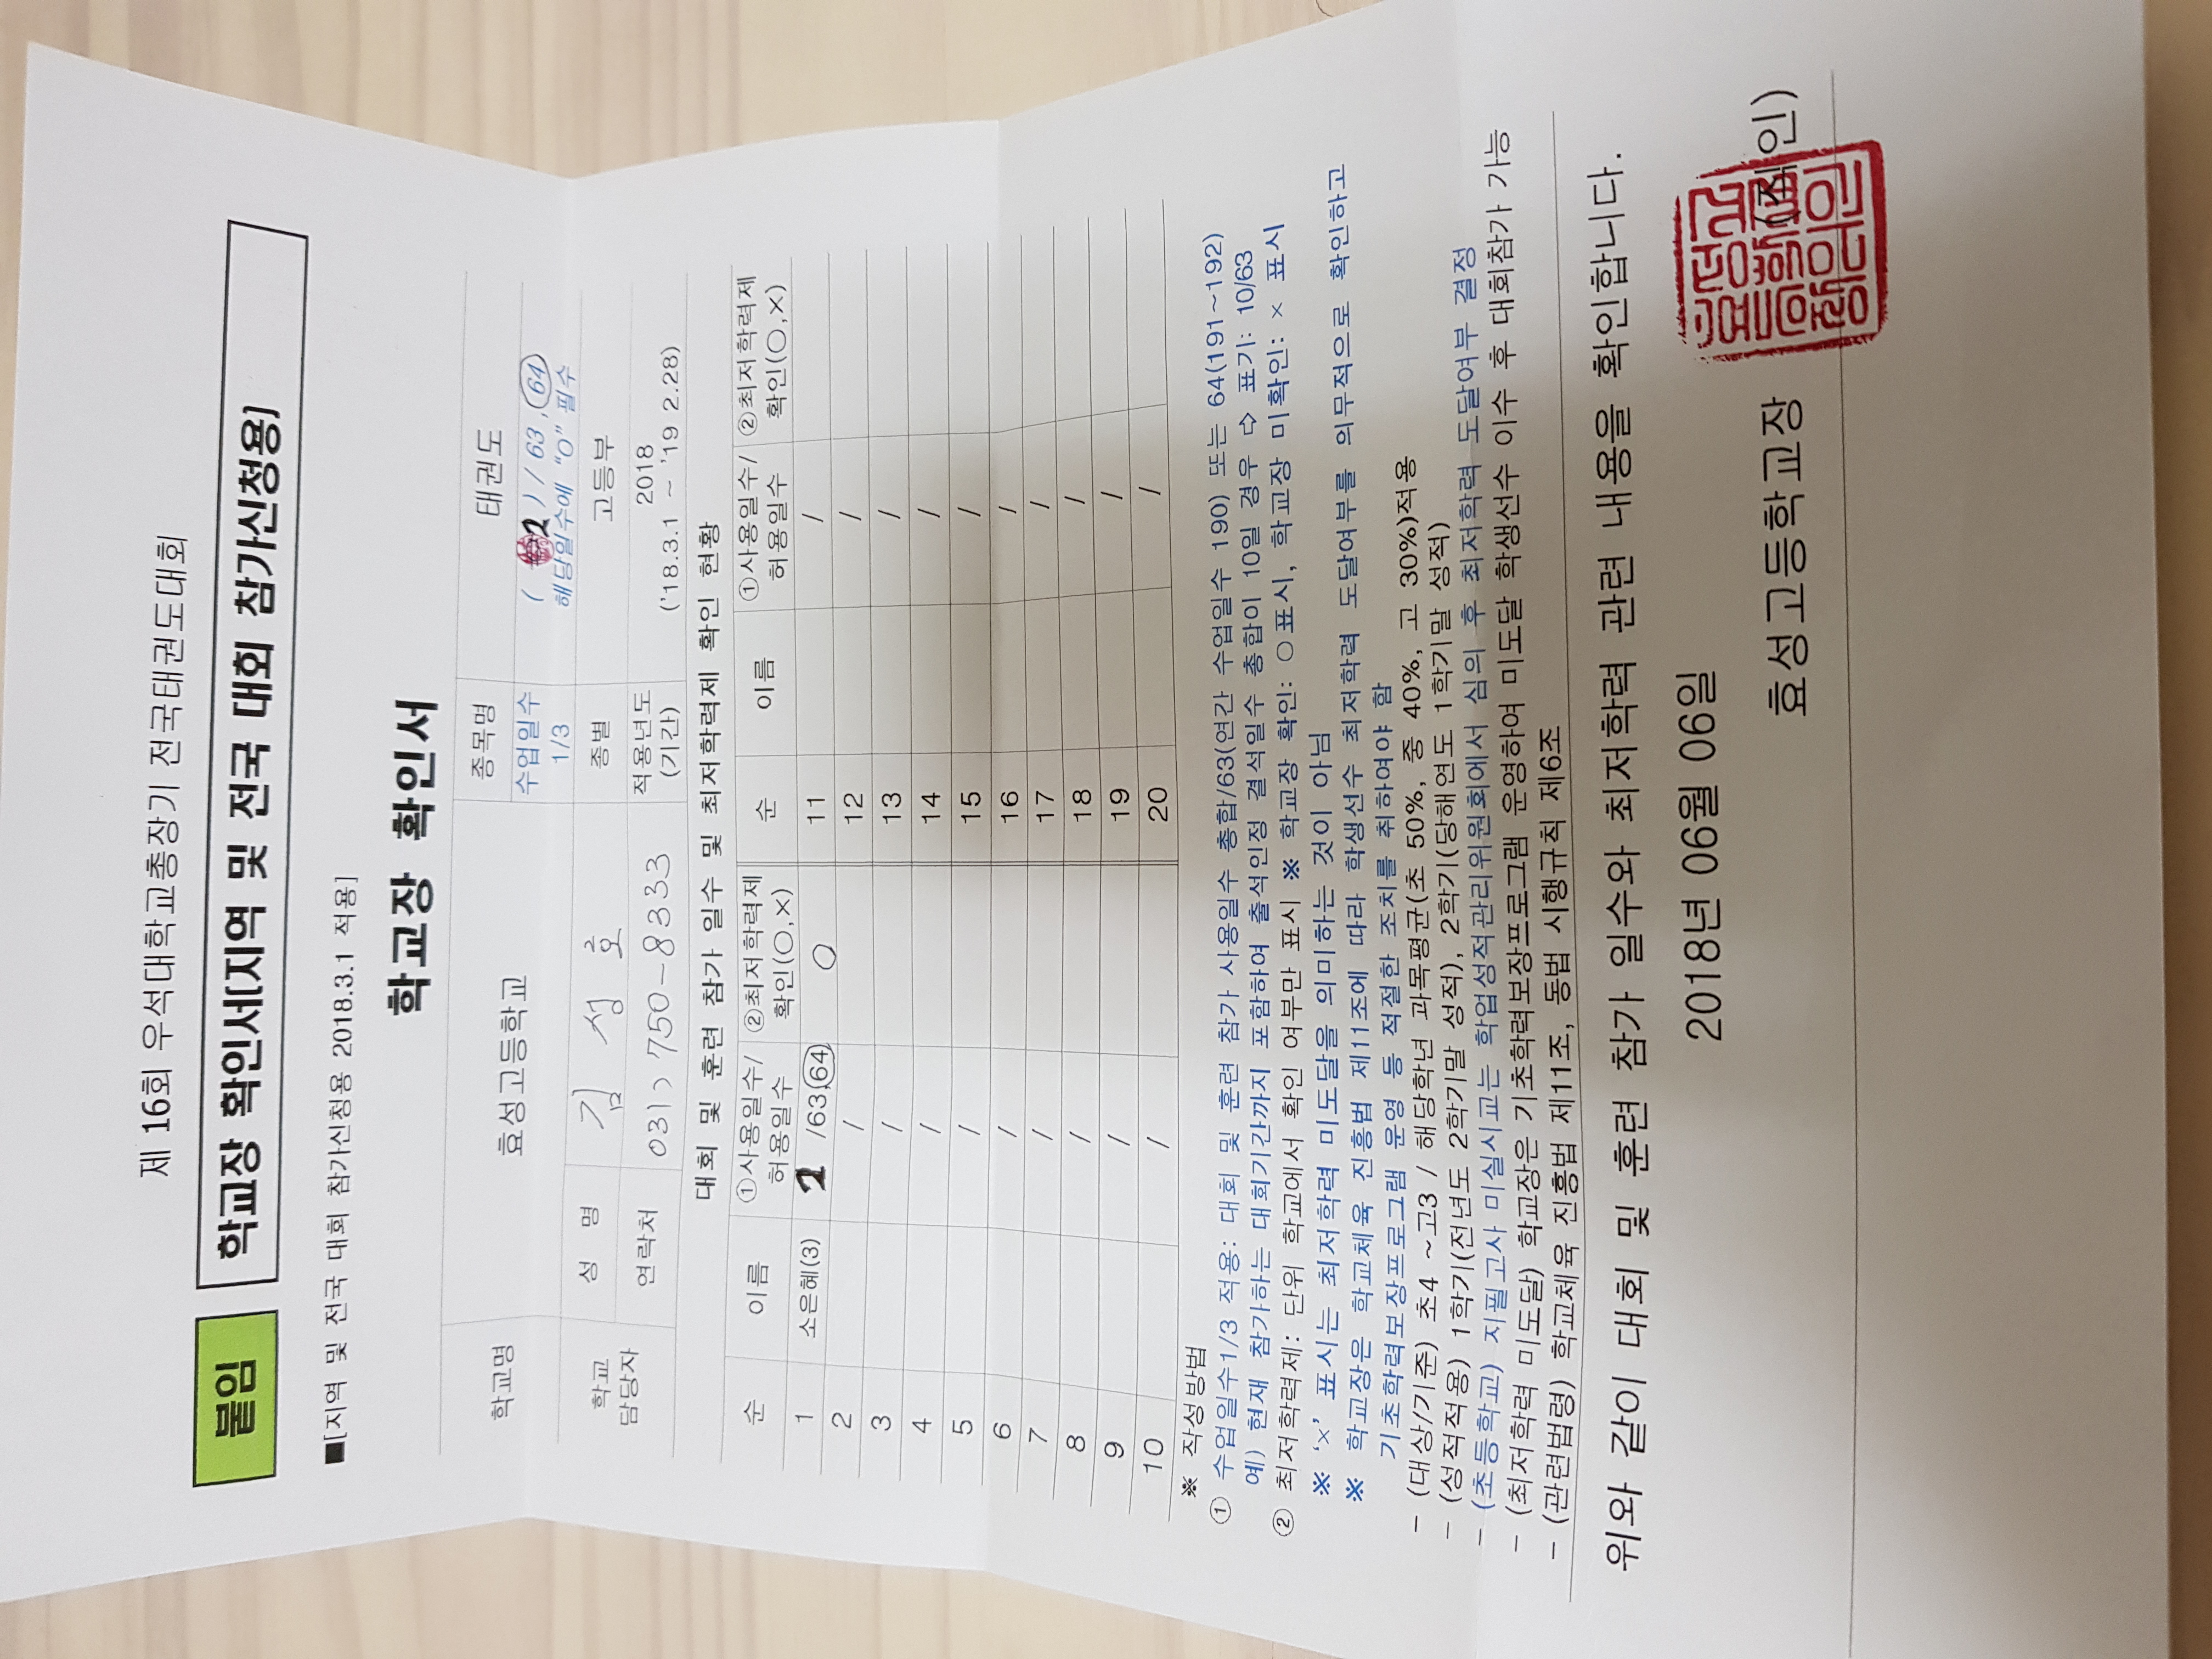 제 16회 우석대학교총장기 전국태권도대회
붙임 학교장 확인서[지역 및 전국 대회 참가신청용]
■[지역 및 전국 대회 참가신청용 2018.3.1 적용]
학교장 확인서
학교명 효성고등학교 종목명 태권도
수업일수 1/3 ( 2 ) / 63 , 64
해당일수에 "O" 필수
학교 담당자 성 명 김 성 호 종별 고등부
연락처 031) 750-8333 적용년도 (기간) 2018 ('18.3.1 ~ '19 2.28)
대회 및 훈련 참가 일수 및 최저학력제 확인 현황
순 이름 ①사용일수/허용일수 ②최저학력제 확인(○,×) 순 이름 ①사용일수/허용일수 ②최저학력제 확인(○,×)
1 소은혜(3) 2 /63,64 ○ 11 /
2 / 12 /
3 / 13 /
4 / 14 /
5 / 15 /
6 / 16 /
7 / 17 /
8 / 18 /
9 / 19 /
10 / 20 /
※ 작성방법
① 수업일수1/3 적용: 대회 및 훈련 참가 사용일수 총합/63(연간 수업일수 190) 또는 64(191~192)
예) 현재 참가하는 대회기간까지 포함하여 출석인정 결석일수 총합이 10일 경우 ⇨ 표기: 10/63
② 최저학력제: 단위 학교에서 확인 여부만 표시 ※ 학교장 확인: ○표시, 학교장 미확인: × 표시
※ '×' 표시는 최저학력 미도달을 의미하는 것이 아님
※ 학교장은 학교체육 진흥법 제11조에 따라 학생선수 최저학력 도달여부를 의무적으로 확인하고
기초학력보장프로그램 운영 등 적절한 조치를 취하여야 함
- (대상/기준) 초4 ~고3 / 해당학년 과목평균(초 50%, 중 40%, 고 30%)적용
- (성적적용) 1학기(전년도 2학기말 성적), 2학기(당해연도 1학기말 성적)
- (초등학교) 지필고사 미실시교는 학업성적관리위원회에서 심의 후 최저학력 도달여부 결정
- (최저학력 미도달) 학교장은 기초학력보장프로그램 운영하여 미도달 학생선수 이수 후 대회참가 가능
- (관련법령) 학교체육 진흥법 제11조, 동법 시행규칙 제6조
위와 같이 대회 및 훈련 참가 일수와 최저학력 관련 내용을 확인합니다.
2018년 06월 06일
효성고등학교장 (직인)